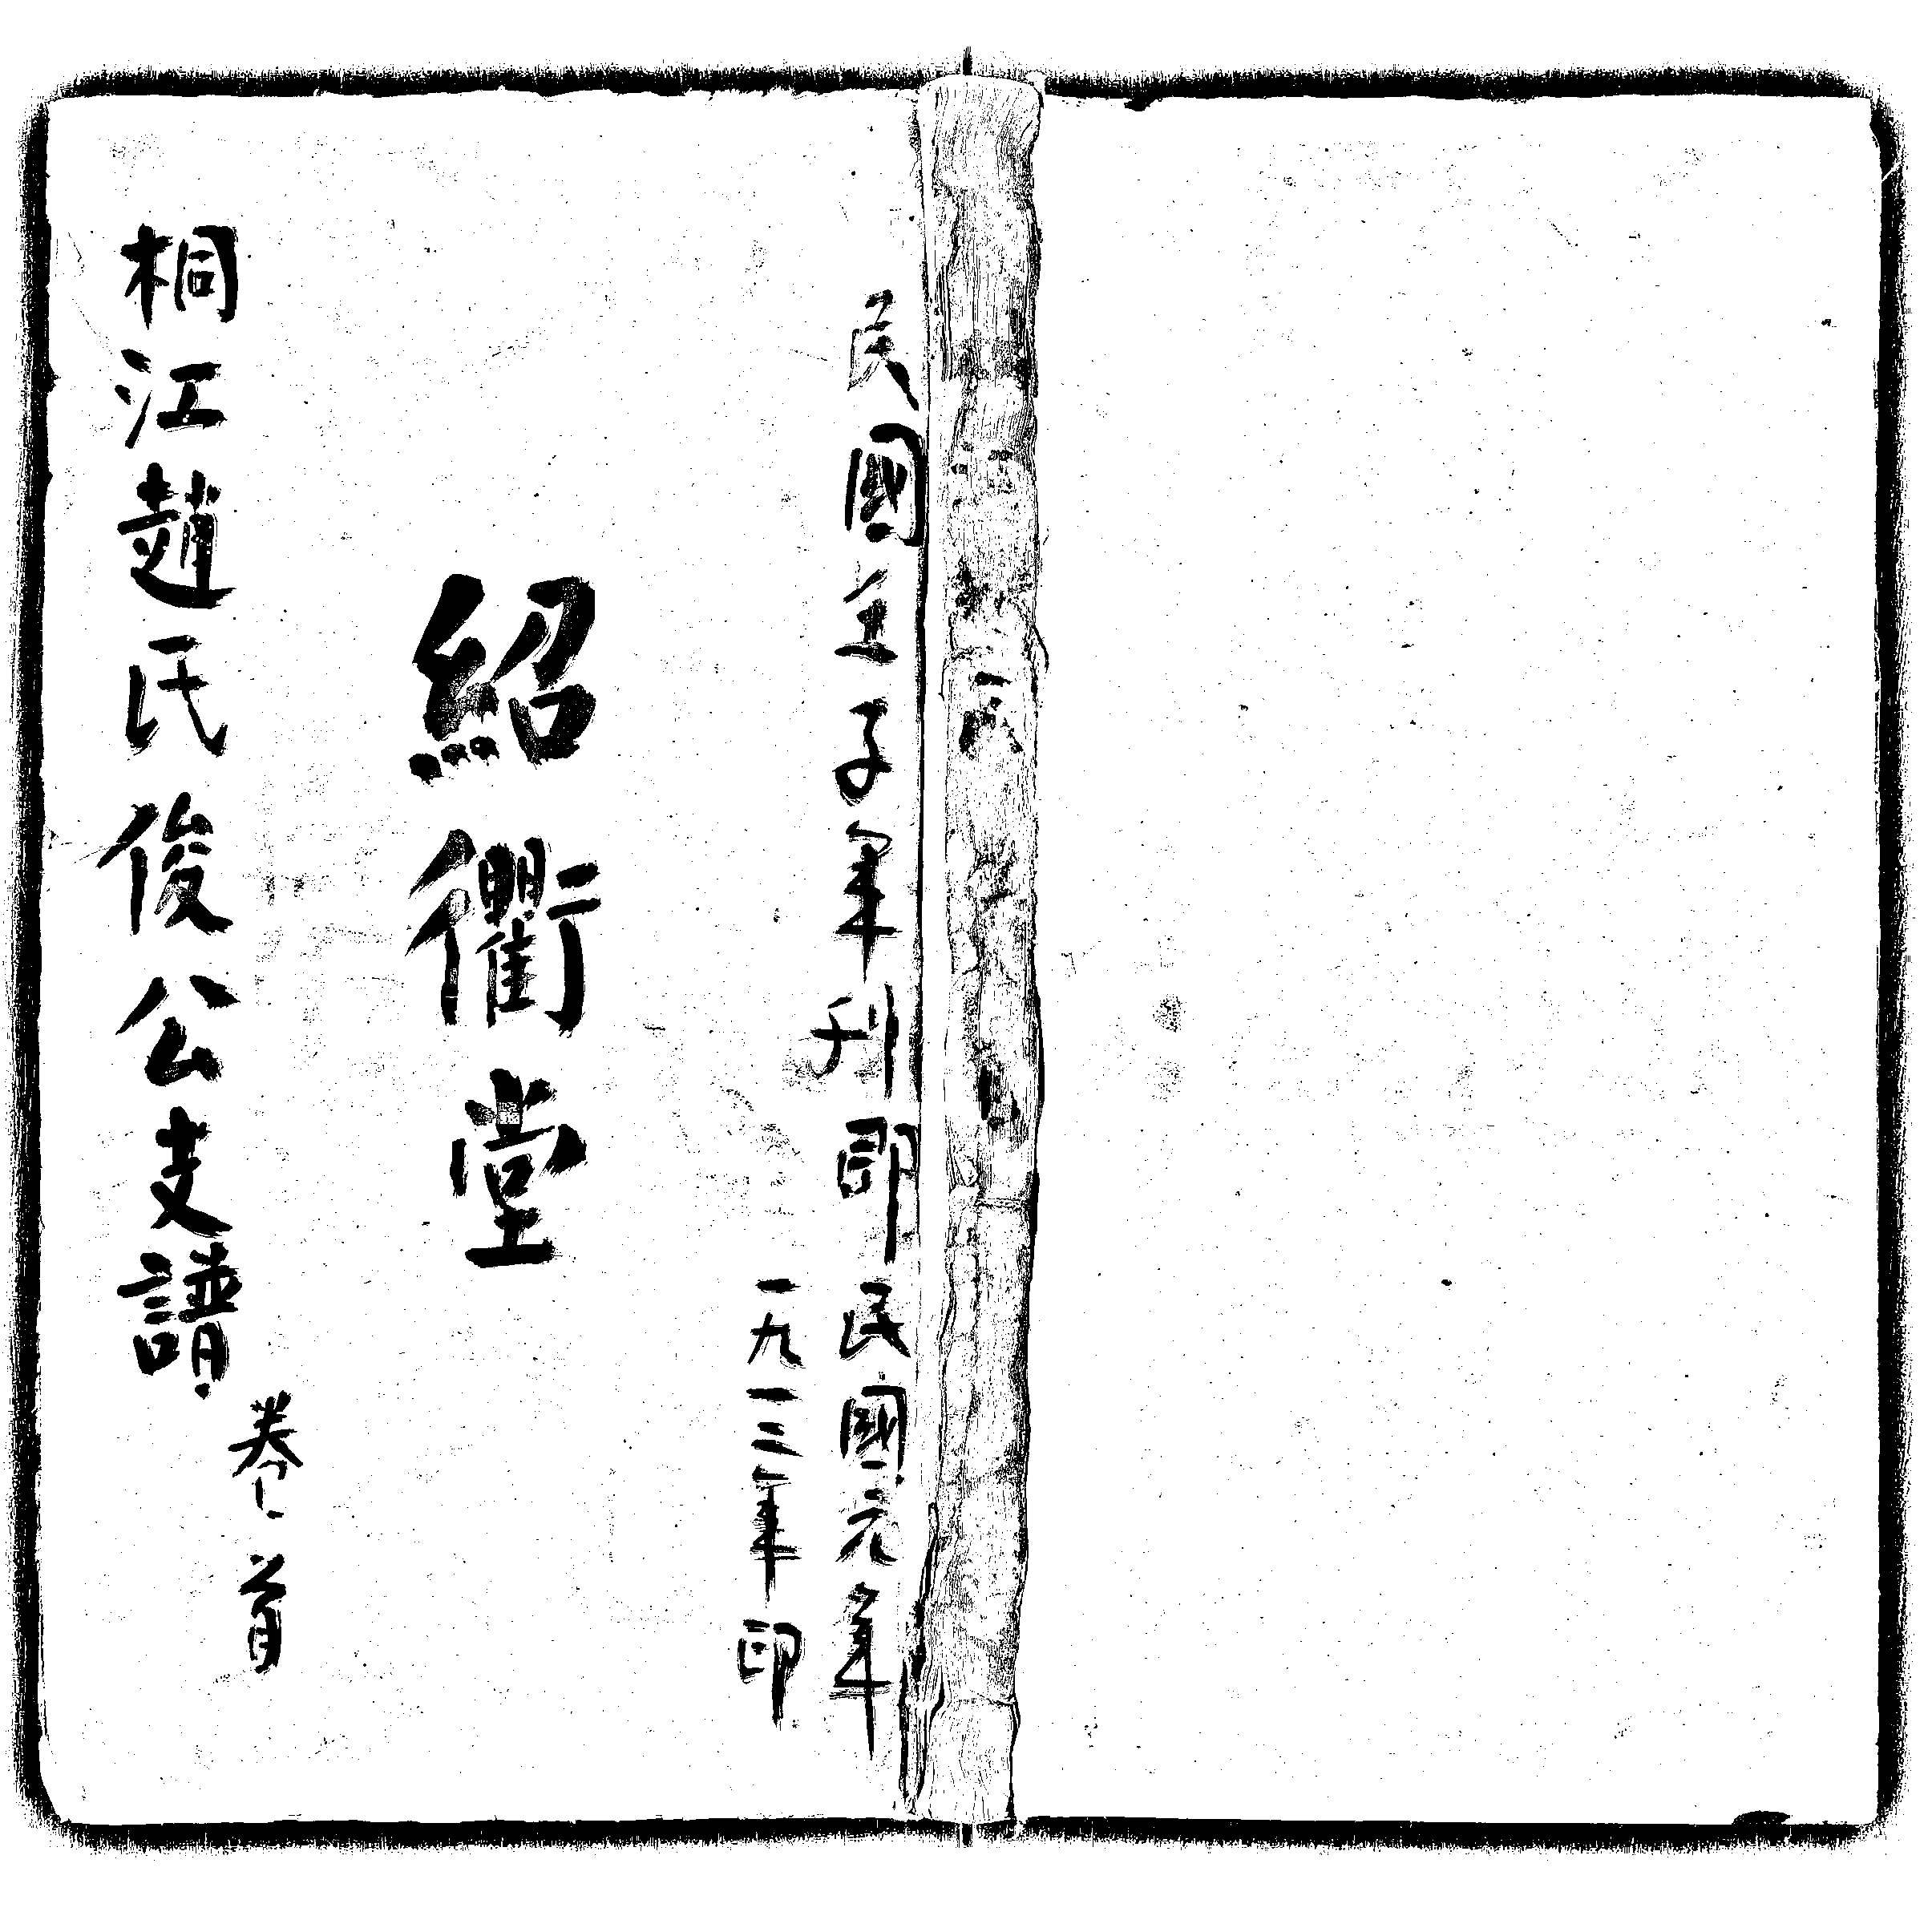 民國壬子年刊印 民國元年
一九一二年印
紹衢堂
桐江趙氏俊公支譜 卷首